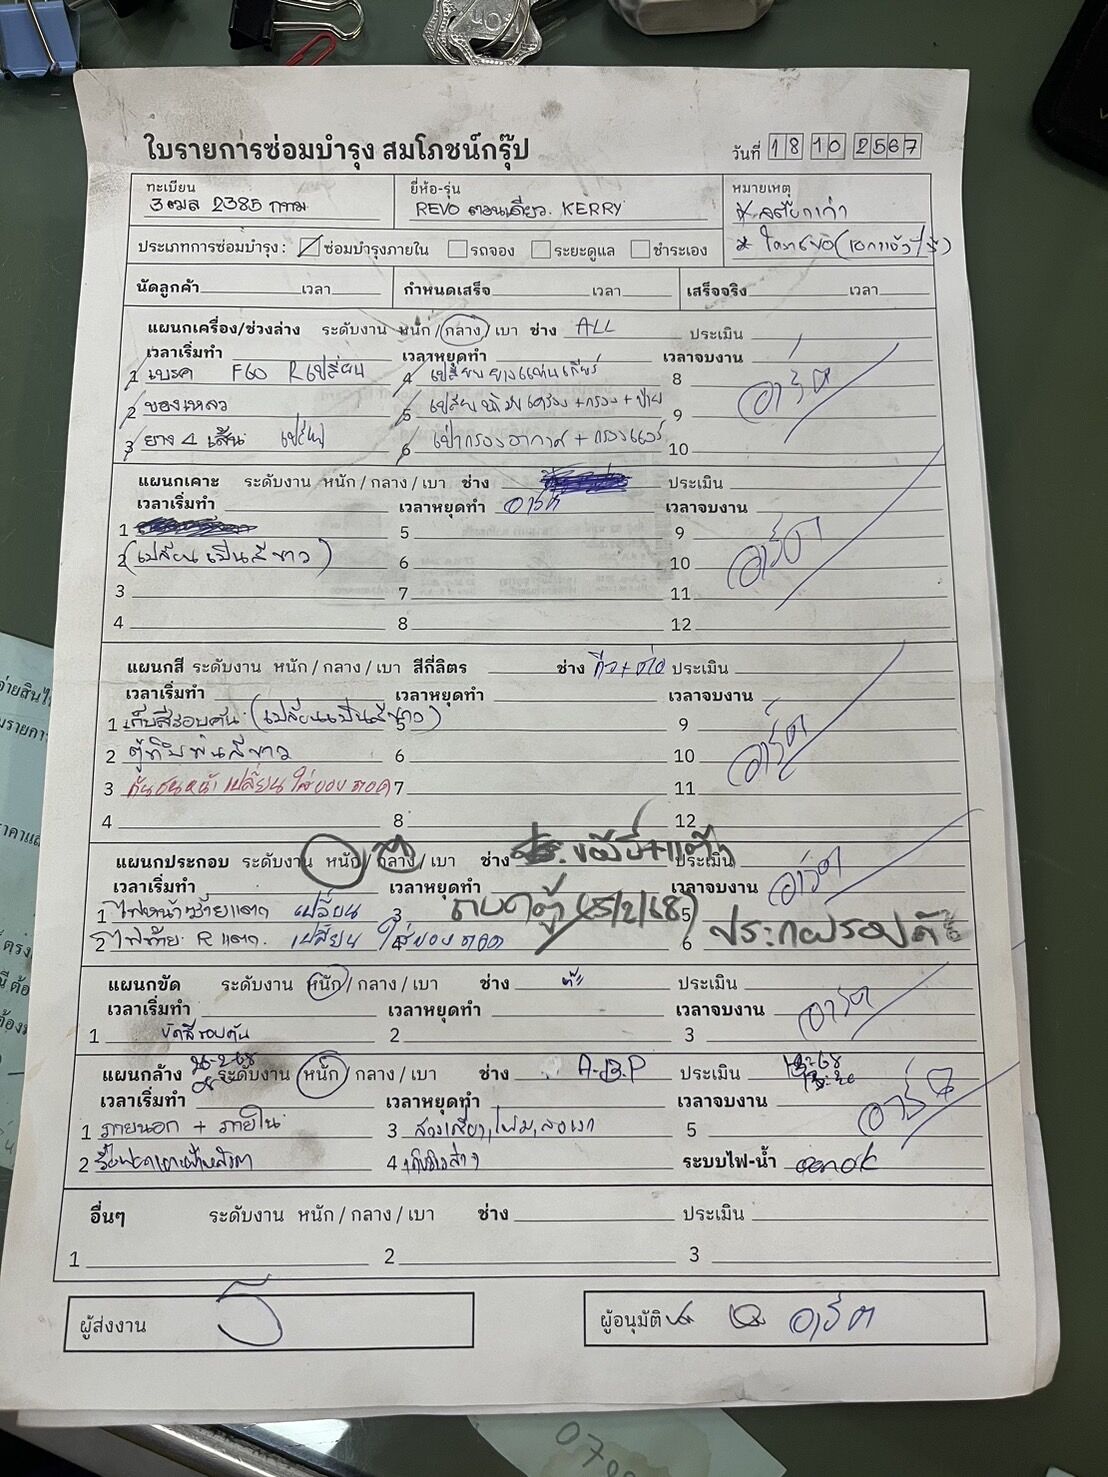 ใบรายการซ่อมบำรุง สมโภชน์กรุ๊ป
วันที่ 18 10 2567
ทะเบียน ยี่ห้อ-รุ่น หมายเหตุ
3ฒล 2385 กทม REVO ตอนเดียว. KERRY
ประเภทการซ่อมบำรุง: ซ่อมบำรุงภายใน รถจอง ระยะดูแล ชำระเอง
นัดลูกค้า เวลา กำหนดเสร็จ เวลา เสร็จจริง เวลา
แผนกเครื่อง/ช่วงล่าง ระดับงาน หนัก / กลาง / เบา ช่าง ALL ประเมิน
เวลาเริ่มทำ เวลาหยุดทำ เวลาจบงาน
1 เบรค F60 R เปลี่ยน 4 เปลี่ยนยางแท่นเกียร์ 8
2 ของเหลว 5 เปลี่ยนน้ำมันเครื่อง + กรอง + ป้าย 9
3 ยาง 4 เส้น เปลี่ยน 6 เป่ากรองอากาศ + กรองแอร์ 10
อาร์ต
แผนกเคาะ ระดับงาน หนัก / กลาง / เบา ช่าง ประเมิน
เวลาเริ่มทำ เวลาหยุดทำ อาร์ต เวลาจบงาน
1 5 9
2 (เปลี่ยนเป็นสีขาว) 6 10
3 7 11
4 8 12
อาร์ต
แผนกสี ระดับงาน หนัก / กลาง / เบา สีกี่ลิตร ช่าง ประเมิน
เวลาเริ่มทำ เวลาหยุดทำ เวลาจบงาน
1 เก็บสีรอบคัน (เปลี่ยนเป็นสีขาว) 5 9
2 ตู้ทึบพ่นสีขาว 6 10
3 กันชนหน้า เปลี่ยน ใส่ของถอด 7 11
4 8 12
อาร์ต
แผนกประกอบ ระดับงาน หนัก / กลาง / เบา ช่าง ประเมิน
เวลาเริ่มทำ เวลาหยุดทำ เวลาจบงาน
1 ไฟหน้าซ้ายแตก เปลี่ยน 3 (5/2/68) 5
2 ไฟท้าย R แตก. เปลี่ยน ใส่ของถอด 4 6 ประกอบรอบคัน
อาร์ต
แผนกขัด ระดับงาน หนัก / กลาง / เบา ช่าง ประเมิน
เวลาเริ่มทำ เวลาหยุดทำ เวลาจบงาน
1 ขัดสีรอบคัน 2 3
อาร์ต
แผนกล้าง ระดับงาน หนัก / กลาง / เบา ช่าง A.B.P ประเมิน
เวลาเริ่มทำ เวลาหยุดทำ เวลาจบงาน
1 ภายนอก + ภายใน 3 5
2 4 ระบบไฟ-น้ำ
อาร์ต
อื่นๆ ระดับงาน หนัก / กลาง / เบา ช่าง ประเมิน
1 2 3
ผู้ส่งงาน ผู้อนุมัติ อาร์ต